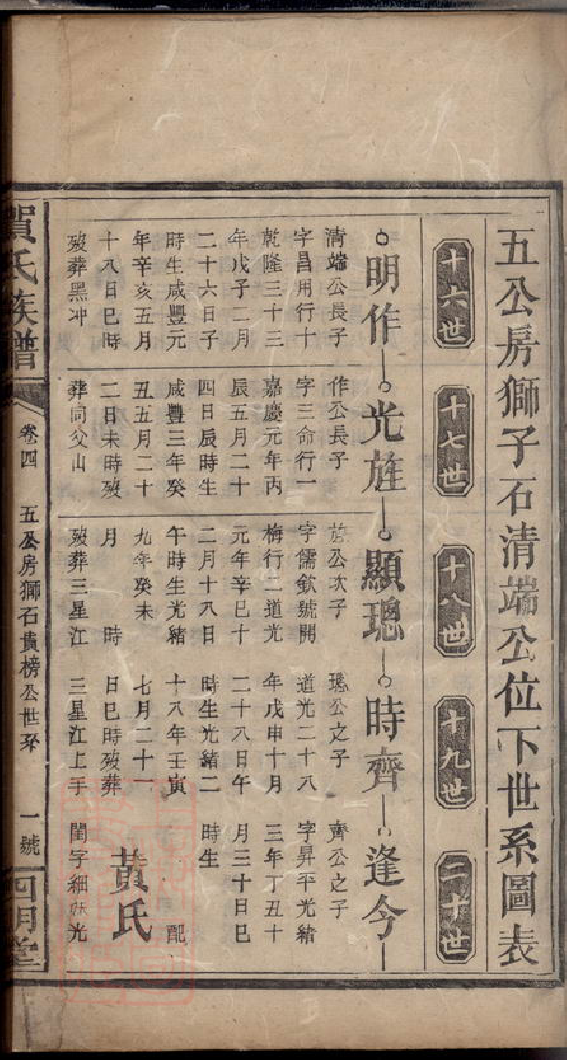 五公房獅子石清端公位下世系圖表
十六世
十七世
十八世
十九世
二十世
明作
光旌
顯璁
時齊
逢今
清端公長子
字昌用行十
乾隆三十三
年戊子二月
二十六日子
時生咸豐元
年辛亥五月
十八日巳時
歿葬黑冲
作公長子
字三命行一
嘉慶元年丙
辰五月二十
四日辰時生
咸豐三年癸
丑五月二十
二日未時歿
葬同父山
旌公次子
字儒欽號開
梅行二道光
元年辛巳十
二月十八日
午時生光緒
九年癸未
月 時
歿葬三星江
璁公之子
道光二十八
年戊申十月
二十八日午
時生光緒二
十八年壬寅
七月二十一
日巳時歿葬
三星江上手
齊公之子
字昇平光緒
三年丁丑十
月三十日巳
時生
配
黃氏
閨字細妹光
賀氏族譜
卷四
五公房獅石貴榜公世系
一號
四明堂